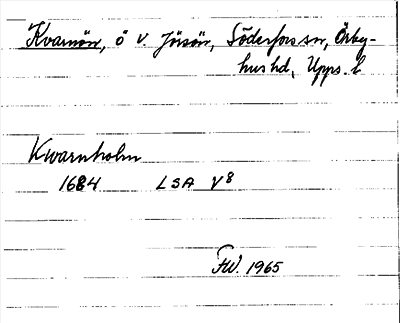 Kvarnön, ö v. Jörsön, Söderfors sn, Örby-
hus hd, Upps. l
Kwarnholm
1684 LSA V8
FW. 1965